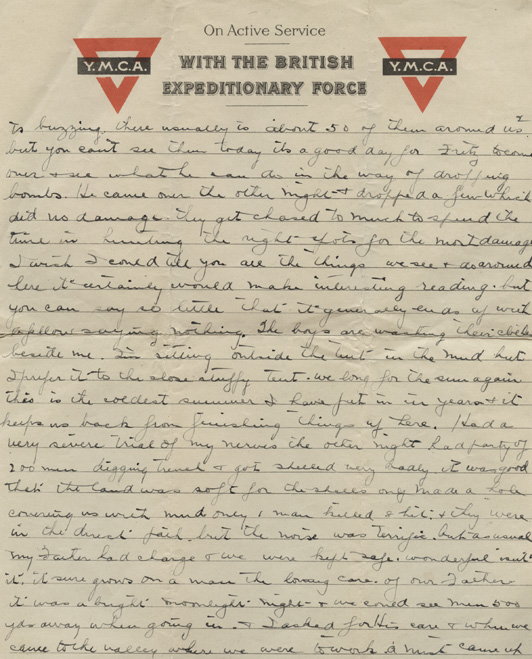 On Active Service
WITH THE BRITISH
EXPEDITIONARY FORCE
Y.M.C.A.
Y.M.C.A.
2
is buzzing. there usually is about 50 of them around us
but you can't see them today its a good day for Fritz to come
over & see what he can do in the way of dropping
bombs. He came over the other night & dropped a few which
did no damage. they get chased to much to spend the
time in hunting the right spots for the most damage
I wish I could tell you all the things we see & do around
here it certainly would make interesting reading. but
you can say so little that it generally ends up with
a fellow saying nothing. The boys are washing their clothes
beside me. I'm sitting outside the tent in the mud but
I prefer it to the close stuffy tent. we long for the sun again
this is the coldest summer I have put in in years & it
keeps us back from finishing things up here. Had a
very severe trial of my nerves the other night had party of
200 men digging trench & got shelled very badly. it was good
that the land was soft for the shells only made a hole
covering us with mud only 1 man killed 8 hit & they were
in the direct path. but the noise was terrific but as usual
my Father had charge & we were kept safe. wonderful isn't
it. it sure grows on a man the loving care of our Father
it was a bright moonlight night & we could see men 500
yds away when going in. & I asked for His care & when we
came to the valley where we were to work a mist came up